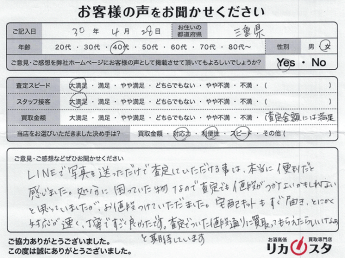 お客様の声をお聞かせください
ご記入日 30年 4月 28日 お住いの都道府県 三重県
年齢 20代・30代・40代・50代・60代・70代・80代〜 性別 男・女
ご意見・ご感想を弊社ホームページにお客様の声として掲載させて頂いてもよろしいでしょうか? Yes・No
査定スピード 大満足・満足・やや満足・どちらでもない・やや不満・不満・( )
スタッフ接客 大満足・満足・やや満足・どちらでもない・やや不満・不満・( )
買取金額 大満足・満足・やや満足・どちらでもない・やや不満・不満・( 査定金額には満足
当店をお選びいただきました決め手は? 買取金額・対応・利便性・スピード・その他( )
ご意見・ご感想などぜひお聞かせください
LINEで写真を送っただけで査定していただける事は、本当に便利だと
感じました。処分に困っていた物なので査定でも値段がつけばいいかもしれない
と思っていましたが、お値段つけていただいた。宅配キットもすぐ届き、とにかく
すばやく速く、丁寧ですごく良かったです。査定でついた値段通りに買取ってもらえたらいいなぁ
と期待しています
ご協力ありがとうございました。
この度は誠にありがとうございました。
お酒高価買取専門店
リカスタ